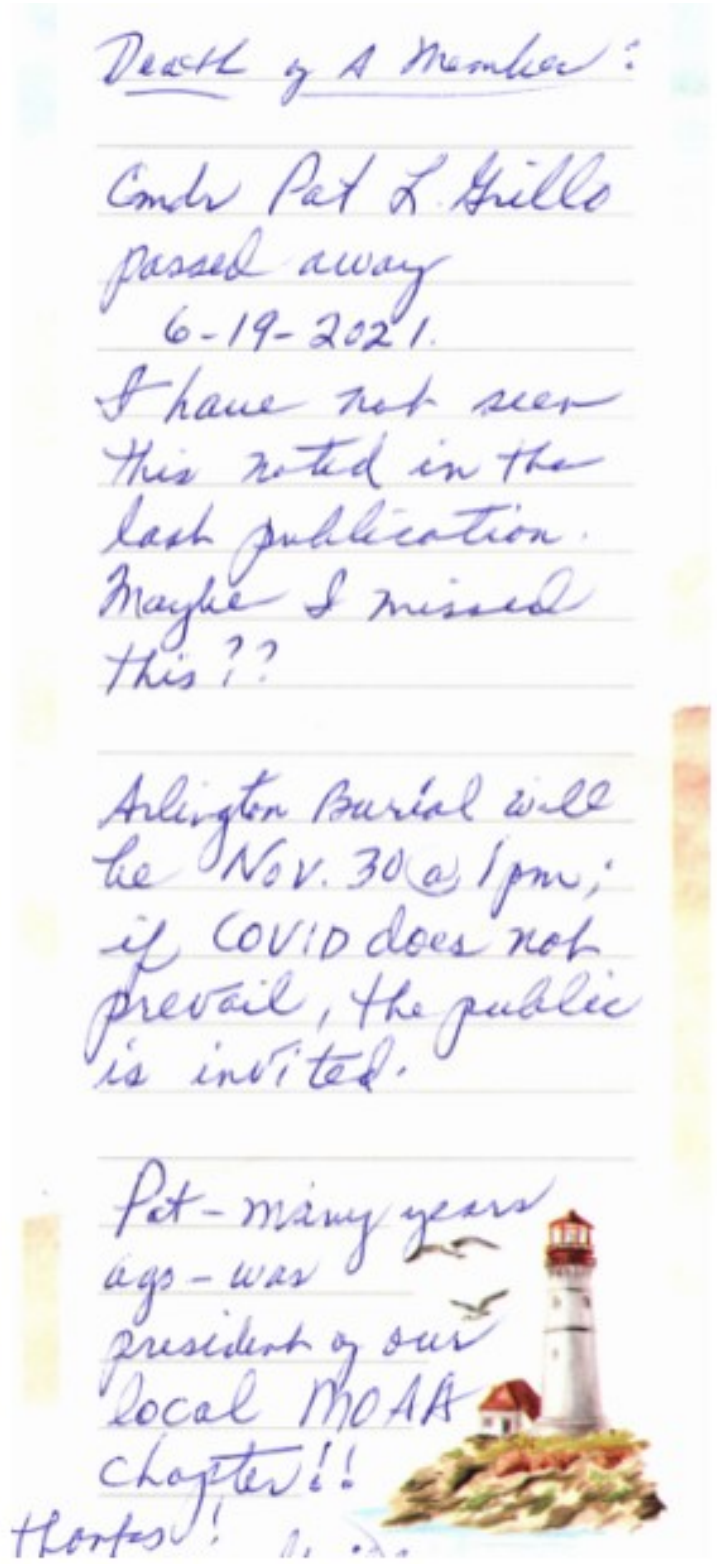 Death of A Member:
Cmdr Pat L. Grillo
passed away
6-19-2021.
I have not seen
this noted in the
last publication.
Maybe I missed
this??
Arlington Burial will
be Nov. 30 @ 1pm;
if COVID does not
prevail, the public
is invited.
Pat - many years
ago - was
president of our
local MOAA
chapter!!
thanks!